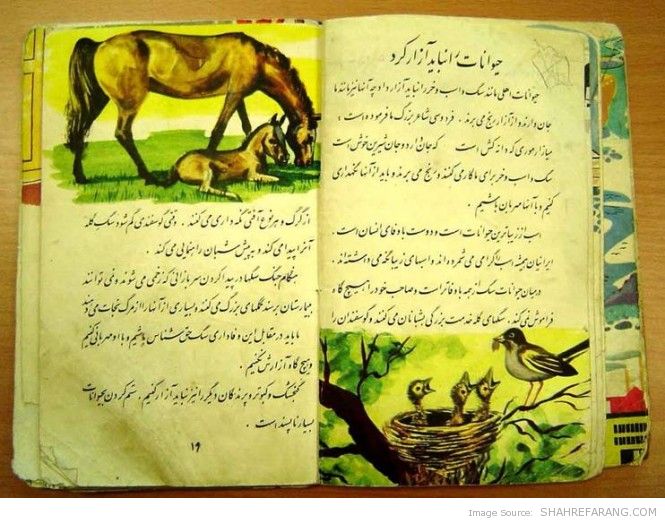 حیوانات را نباید آزار کرد
حیوانات اهلی مانند سگ و اسب و خر را نباید آزار داد چه آنها نیز مانند ما
جان دارند و از آزار رنج می برند . فردوسی شاعر بزرگ ما فرموده است :
میازار موری که دانه کش است که جان دارد و جان شیرین خوش است
سگ و اسب و خر برای ما کار می کنند و رنج می برند و باید از آنها نگهداری
کنیم و با آنها مهربان باشیم .
اسب از زیباترین حیوانات است و دوست باوفای انسان است .
ایرانیان همیشه اسب را گرامی می شمرده اند و اسبهای زیبا نگه می داشته اند .
در میان حیوانات سگ از همه باوفاتر است و صاحب خود را هیچ گاه
فراموش نمی کند . سگهای گله خدمت بزرگی بشبانان می کنند و گوسفندان را
از گرگ و هر نوع آفتی نگه داری می کنند . وقتی گوسفندی گم شود سگ گله
آنرا پیدا می کند و به پیش شبان راهنمایی می کند .
هنگام جنگ سگها در پیدا کردن سربازانی که زخمی می شوند و نمی توانند
بیمارستان برسند کمکهای بزرگ می کنند و بسیاری از آنان را از مرگ نجات می دهند
ما باید در مقابل این وفاداری سگ حق شناس باشیم و با او مهربانی کنیم
و هیچ گاه آزارش نکنیم .
گنجشک و کبوتر و پرندگان دیگر را نیز نباید آزار کنیم . ستم کردن بحیوانات
بسیار ناپسند است .
۱۹
Image Source: SHAHREFARANG.COM